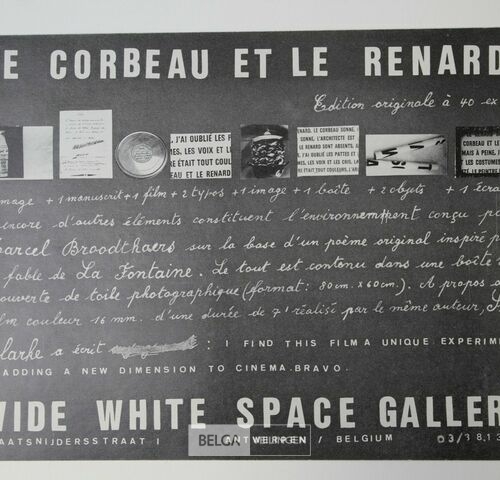 E CORBEAU ET LE RENARD
Edition originale à 40 ex
J'AI OUBLIÉ LES
MES. LES VOIX ET LE
RE ÉTAIT TOUT COULEU
ET LE RENARD
NARD, LE CORBEAU SONNE,
SONNE. L'ARCHITECTE EST
LE RENARD SONT ABSENTS. J
AI OUBLIÉ LES PATTES ET
MES. LES VOIX ET LE
RE ÉTAIT TOUT COULEUR.
CORBEAU ET LE
MAIS A PEINE, J'
ET LES COSTUME
LE PEINTRE
mage + 1 manuscrit + 1 film + 2 typos + 1 image + 1 boîte + 2 objets + 1 écra
encore d'autres éléments constituent l'environnement conçu pa
arcel Broodthaers sur la base d'un poème original inspiré p
fable de La Fontaine. Le tout est contenu dans une boîte
ouverte de toile photographique (format: 80 cm. x 60 cm.). A propos d
lm couleur 16 mm. d'une durée de 7' réalisé par le même auteur, S
larke a écrit : I FIND THIS FILM A UNIQUE EXPERIM
ADDING A NEW DIMENSION TO CINEMA.BRAVO.
WIDE WHITE SPACE GALLER
AATSNIJDERSSTRAAT I ANTWERPEN / BELGIUM 03/38.13
BELGA